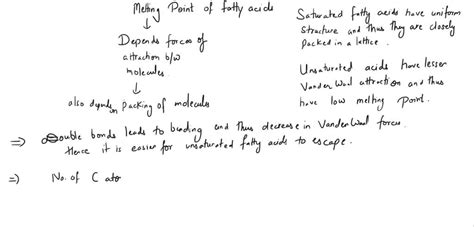 Melting Point of fatty acids
↓
Depends forces of
attraction b/w
molecules.
↓
also depends on packing of molecules
Saturated fatty acids have uniform
structure and thus they are closely
packed in a lattice.
Unsaturated acids have lesser
Vander Waal attraction and thus
have low melting point.
⇒ Double bonds leads to bending and thus decrease in Vander Waal forces.
Hence it is easier for unsaturated fatty acids to escape.
⇒ No. of C ato